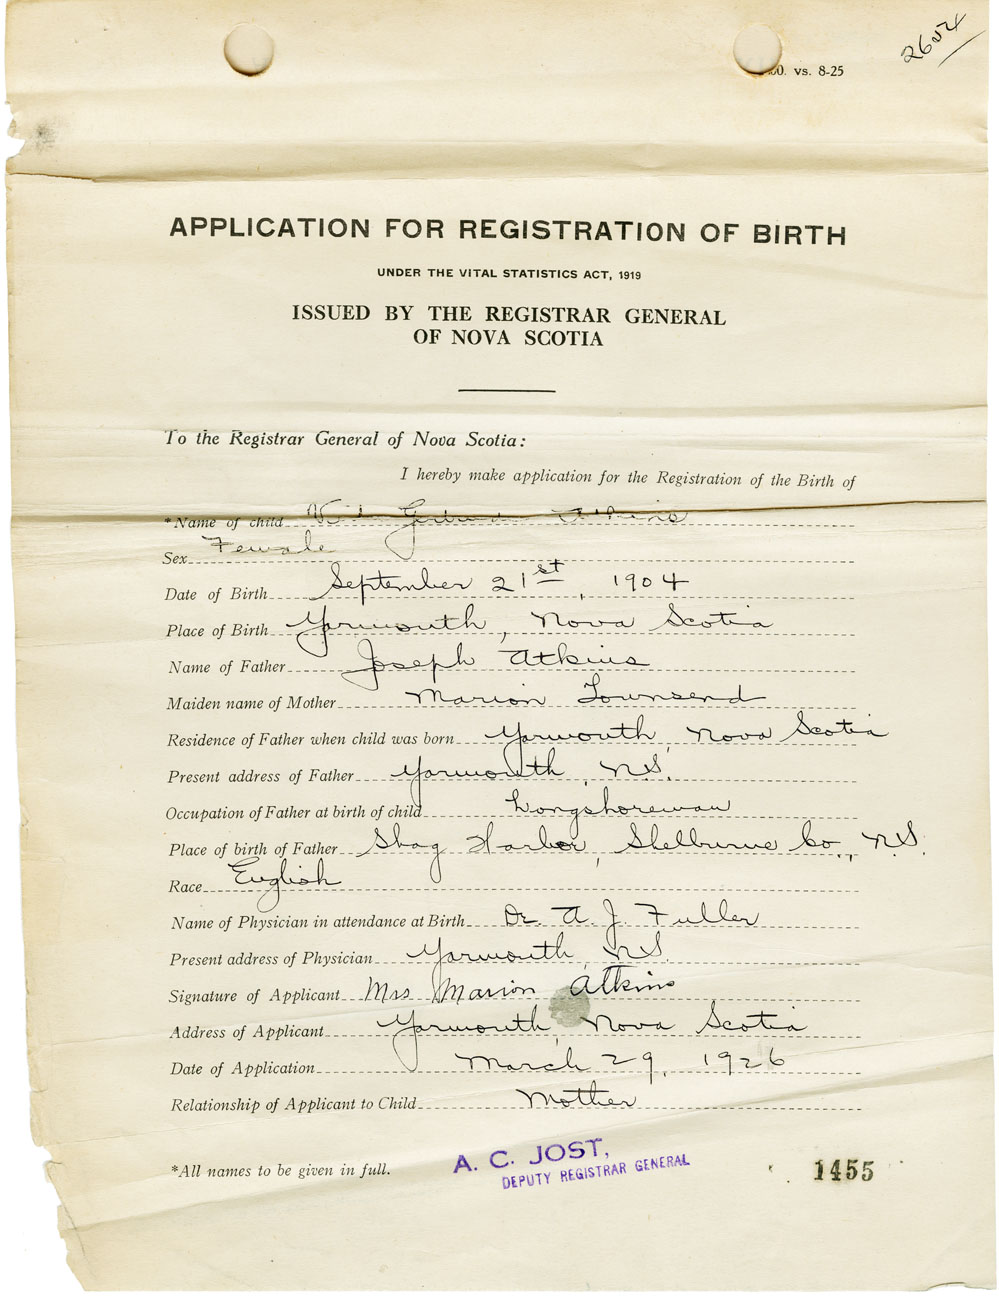 2654
vs. 8-25
APPLICATION FOR REGISTRATION OF BIRTH
UNDER THE VITAL STATISTICS ACT, 1919
ISSUED BY THE REGISTRAR GENERAL
OF NOVA SCOTIA
To the Registrar General of Nova Scotia:
I hereby make application for the Registration of the Birth of
*Name of child Atkins
Sex Female
Date of Birth September 21st, 1904
Place of Birth Yarmouth, Nova Scotia
Name of Father Joseph Atkins
Maiden name of Mother Marion Townsend
Residence of Father when child was born Yarmouth, Nova Scotia
Present address of Father Yarmouth, N.S.
Occupation of Father at birth of child Longshoreman
Place of birth of Father Shag Harbor, Shelburne Co., N.S.
Race English
Name of Physician in attendance at Birth Dr. A. J. Fuller
Present address of Physician Yarmouth, N.S.
Signature of Applicant Mrs Marion Atkins
Address of Applicant Yarmouth, Nova Scotia
Date of Application March 29, 1926
Relationship of Applicant to Child Mother
*All names to be given in full.
A. C. JOST,
DEPUTY REGISTRAR GENERAL
1455